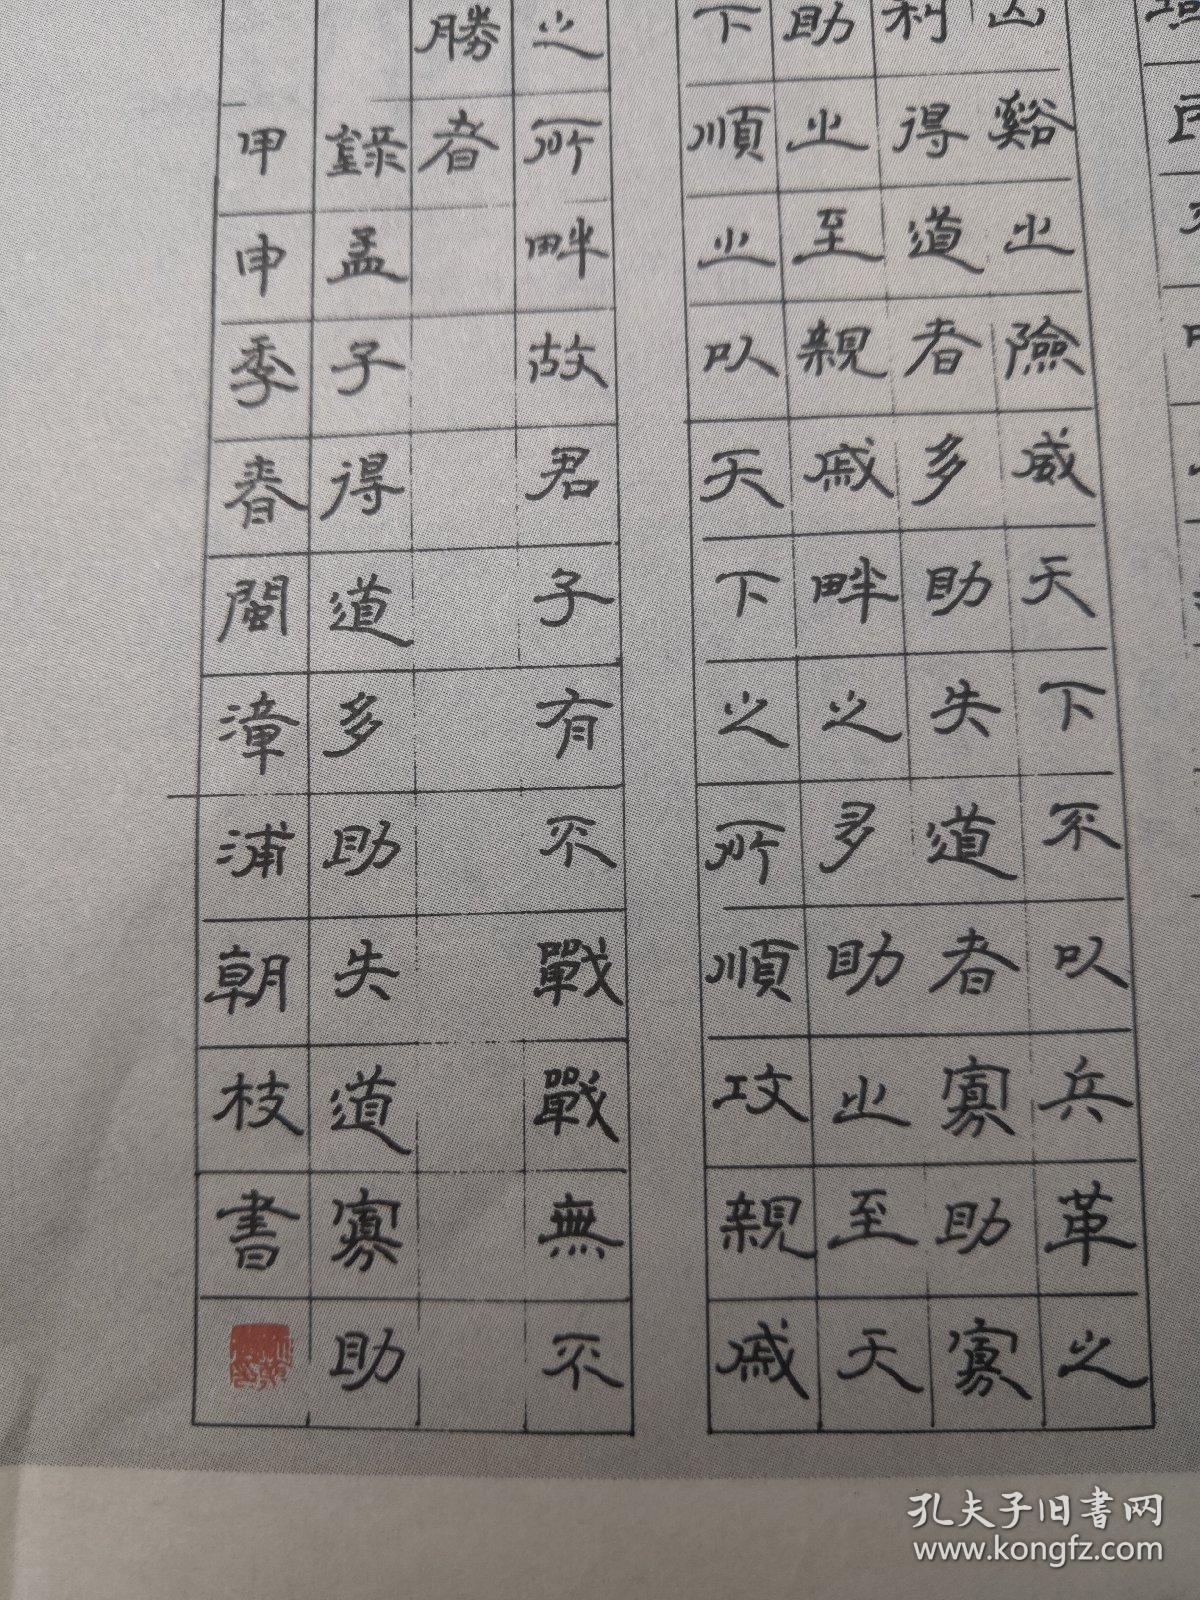 山谿之險威天下不以兵革之
利得道者多助失道者寡助寡
助之至親戚畔之多助之至天
下順之以天下之所順攻親戚
之所畔故君子有不戰戰無不
勝者
錄孟子得道多助失道寡助
甲申季春閩漳浦朝枝書
孔夫子旧書网
www.kongfz.com